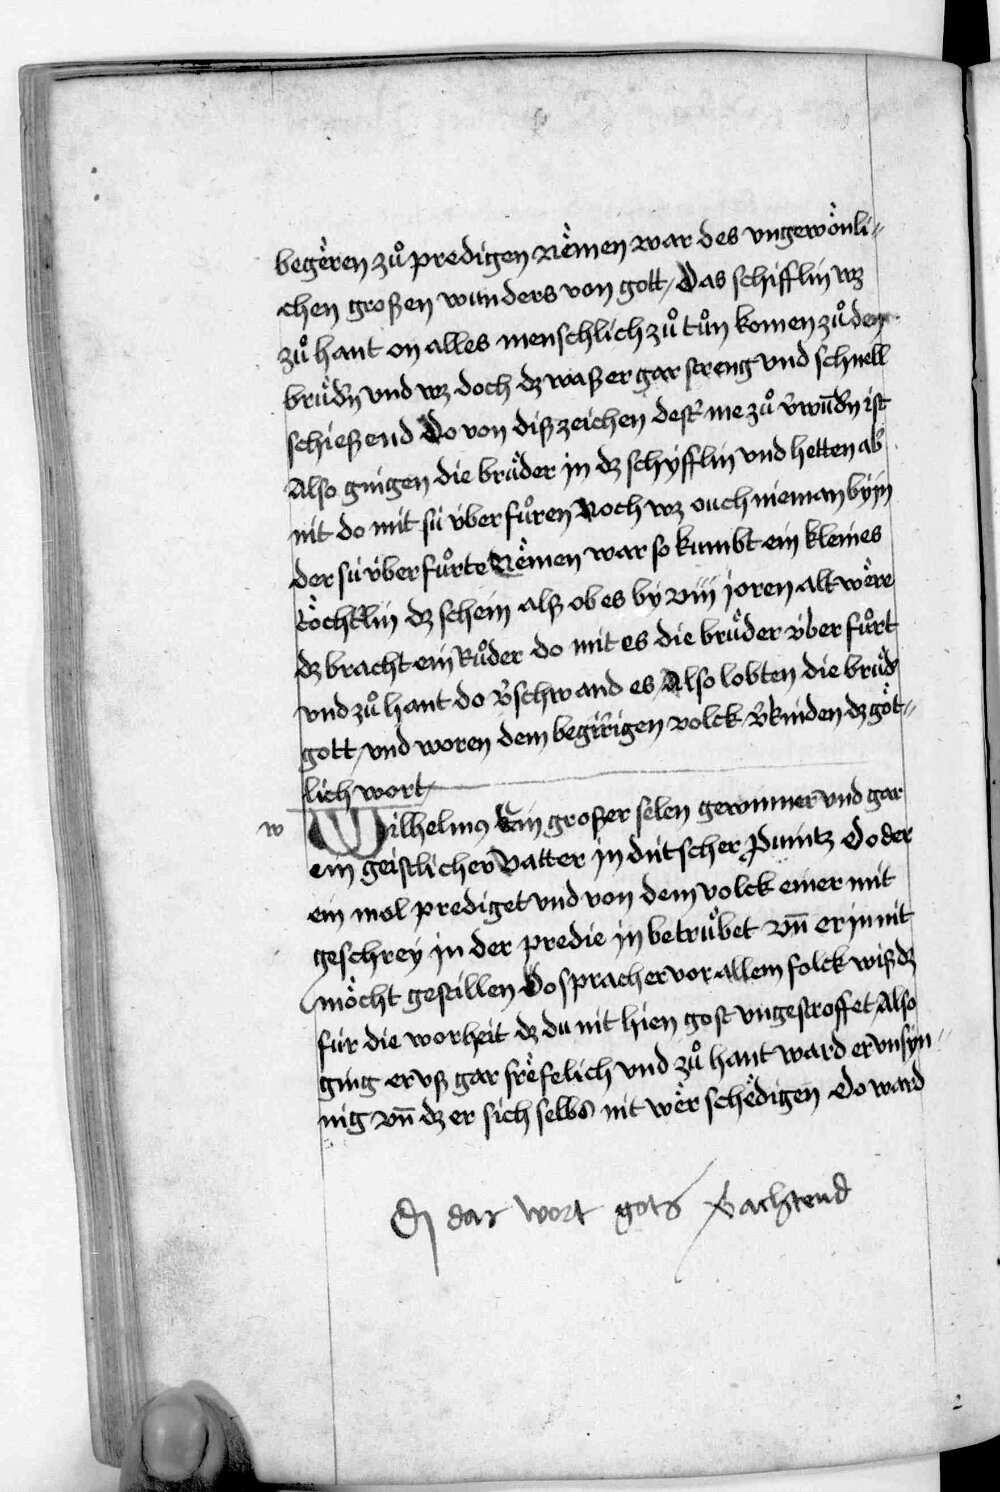 begèren zů predigen Nèmen war des vngewònli-
chen großen wunders von gott / Das schifflin wz
zů hant on alles menschlich zů tůn komen zů den
brůdn̄ vnd wz doch dz waßer gar streng vnd schnell
schießend Do von diß zeichen dest me zů v̄wūdn̄ ist
Also gingen die brůder jn dz schyfflin vnd hetten ab̄
nit do mit sú v́ber fůren Noch wz ouch nieman by jn
der sú v́ber fůrte Nèmen war so kumbt ein kleines
tòchtlin dz schein alß ob es by viij joren alt wère
dz bracht ein Růder do mit es die brůder v́ber fůrt
vnd zů hant do v̄schwand es / Also lobten die brůd̄
gott / vnd woren dem begirigen volck v̄kúnden dz gòt-
lich wort /
w Wilhelmus Ein großer selen gewinner vnd gar
ein geistlicher Vatter jn dútscher Pruintz Do der
ein mol prediget vnd von dem volck einer mit
geschrey jn der predie jn betrůbet vn̄ er jn nit
mòcht gestillen Do sprach er vor allem folck wiß dz
fúr die worheit dz du nit hien gost vngestroffet / Also
ging er vß gar frèfelich vnd zů hant ward er vnsyn-
nig vn̄ dz er sich selbs nit wèr schèdigen Do ward
dar wort gots v̄achtend